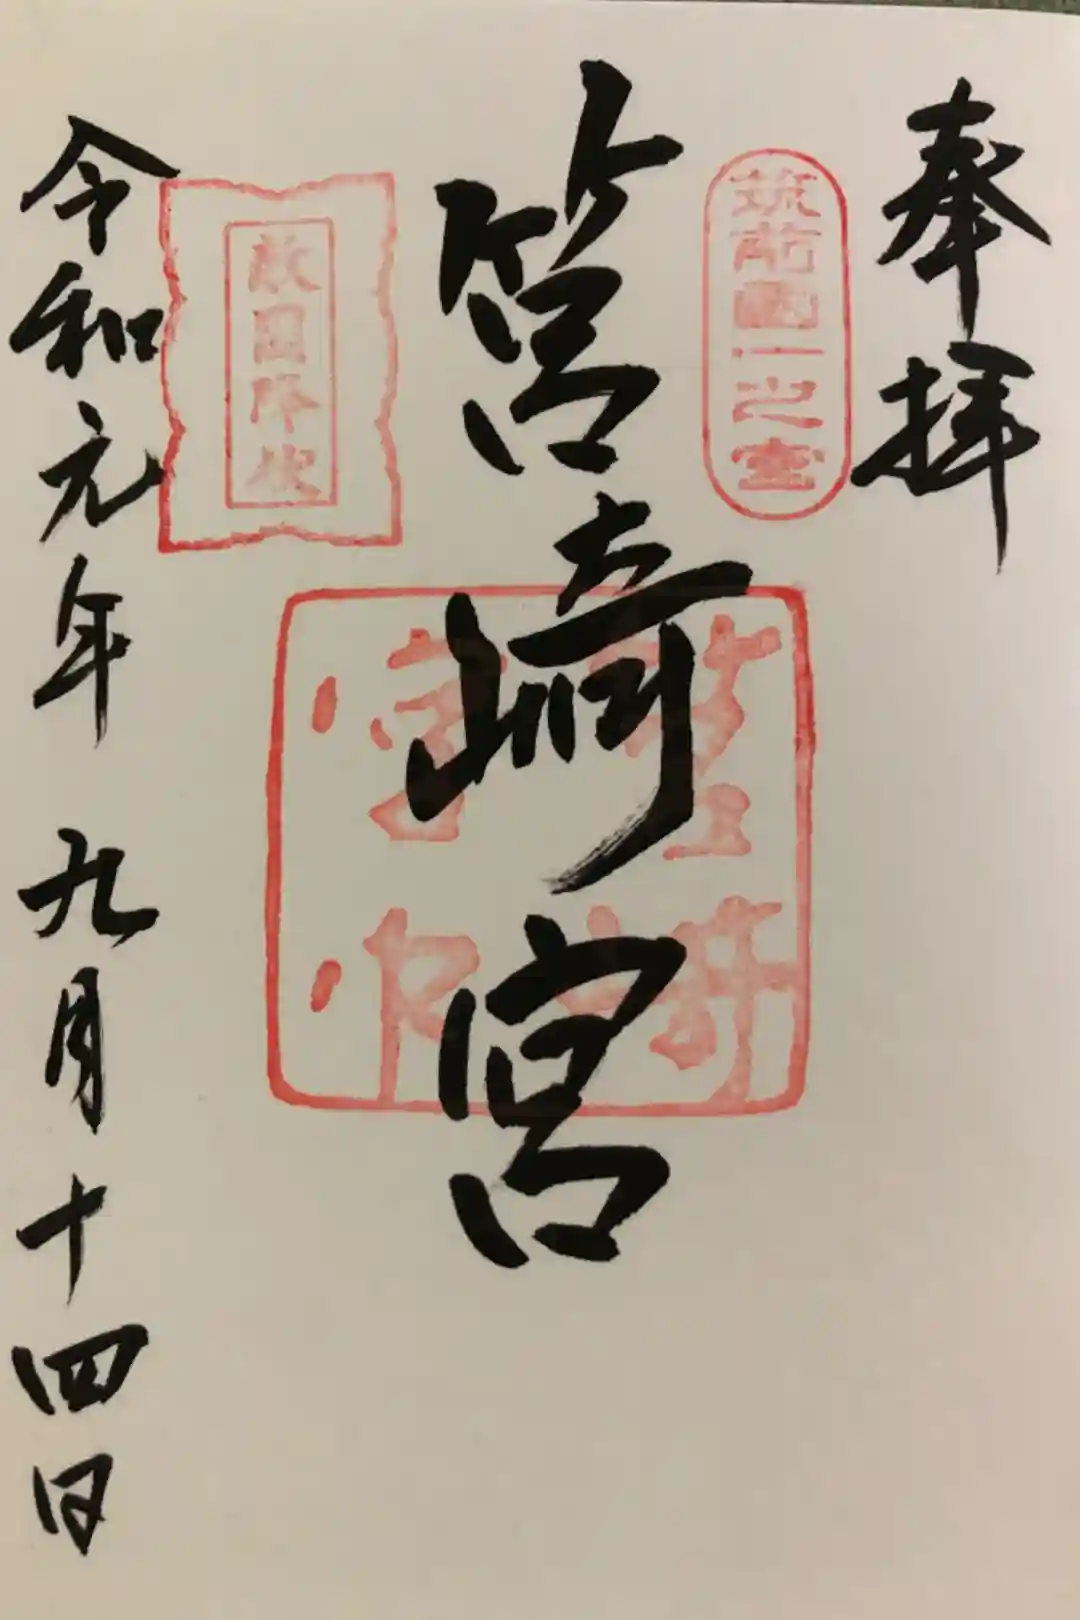 奉拝
筑前國一之宮
筥崎宮
敵国降伏
令和元年九月十四日